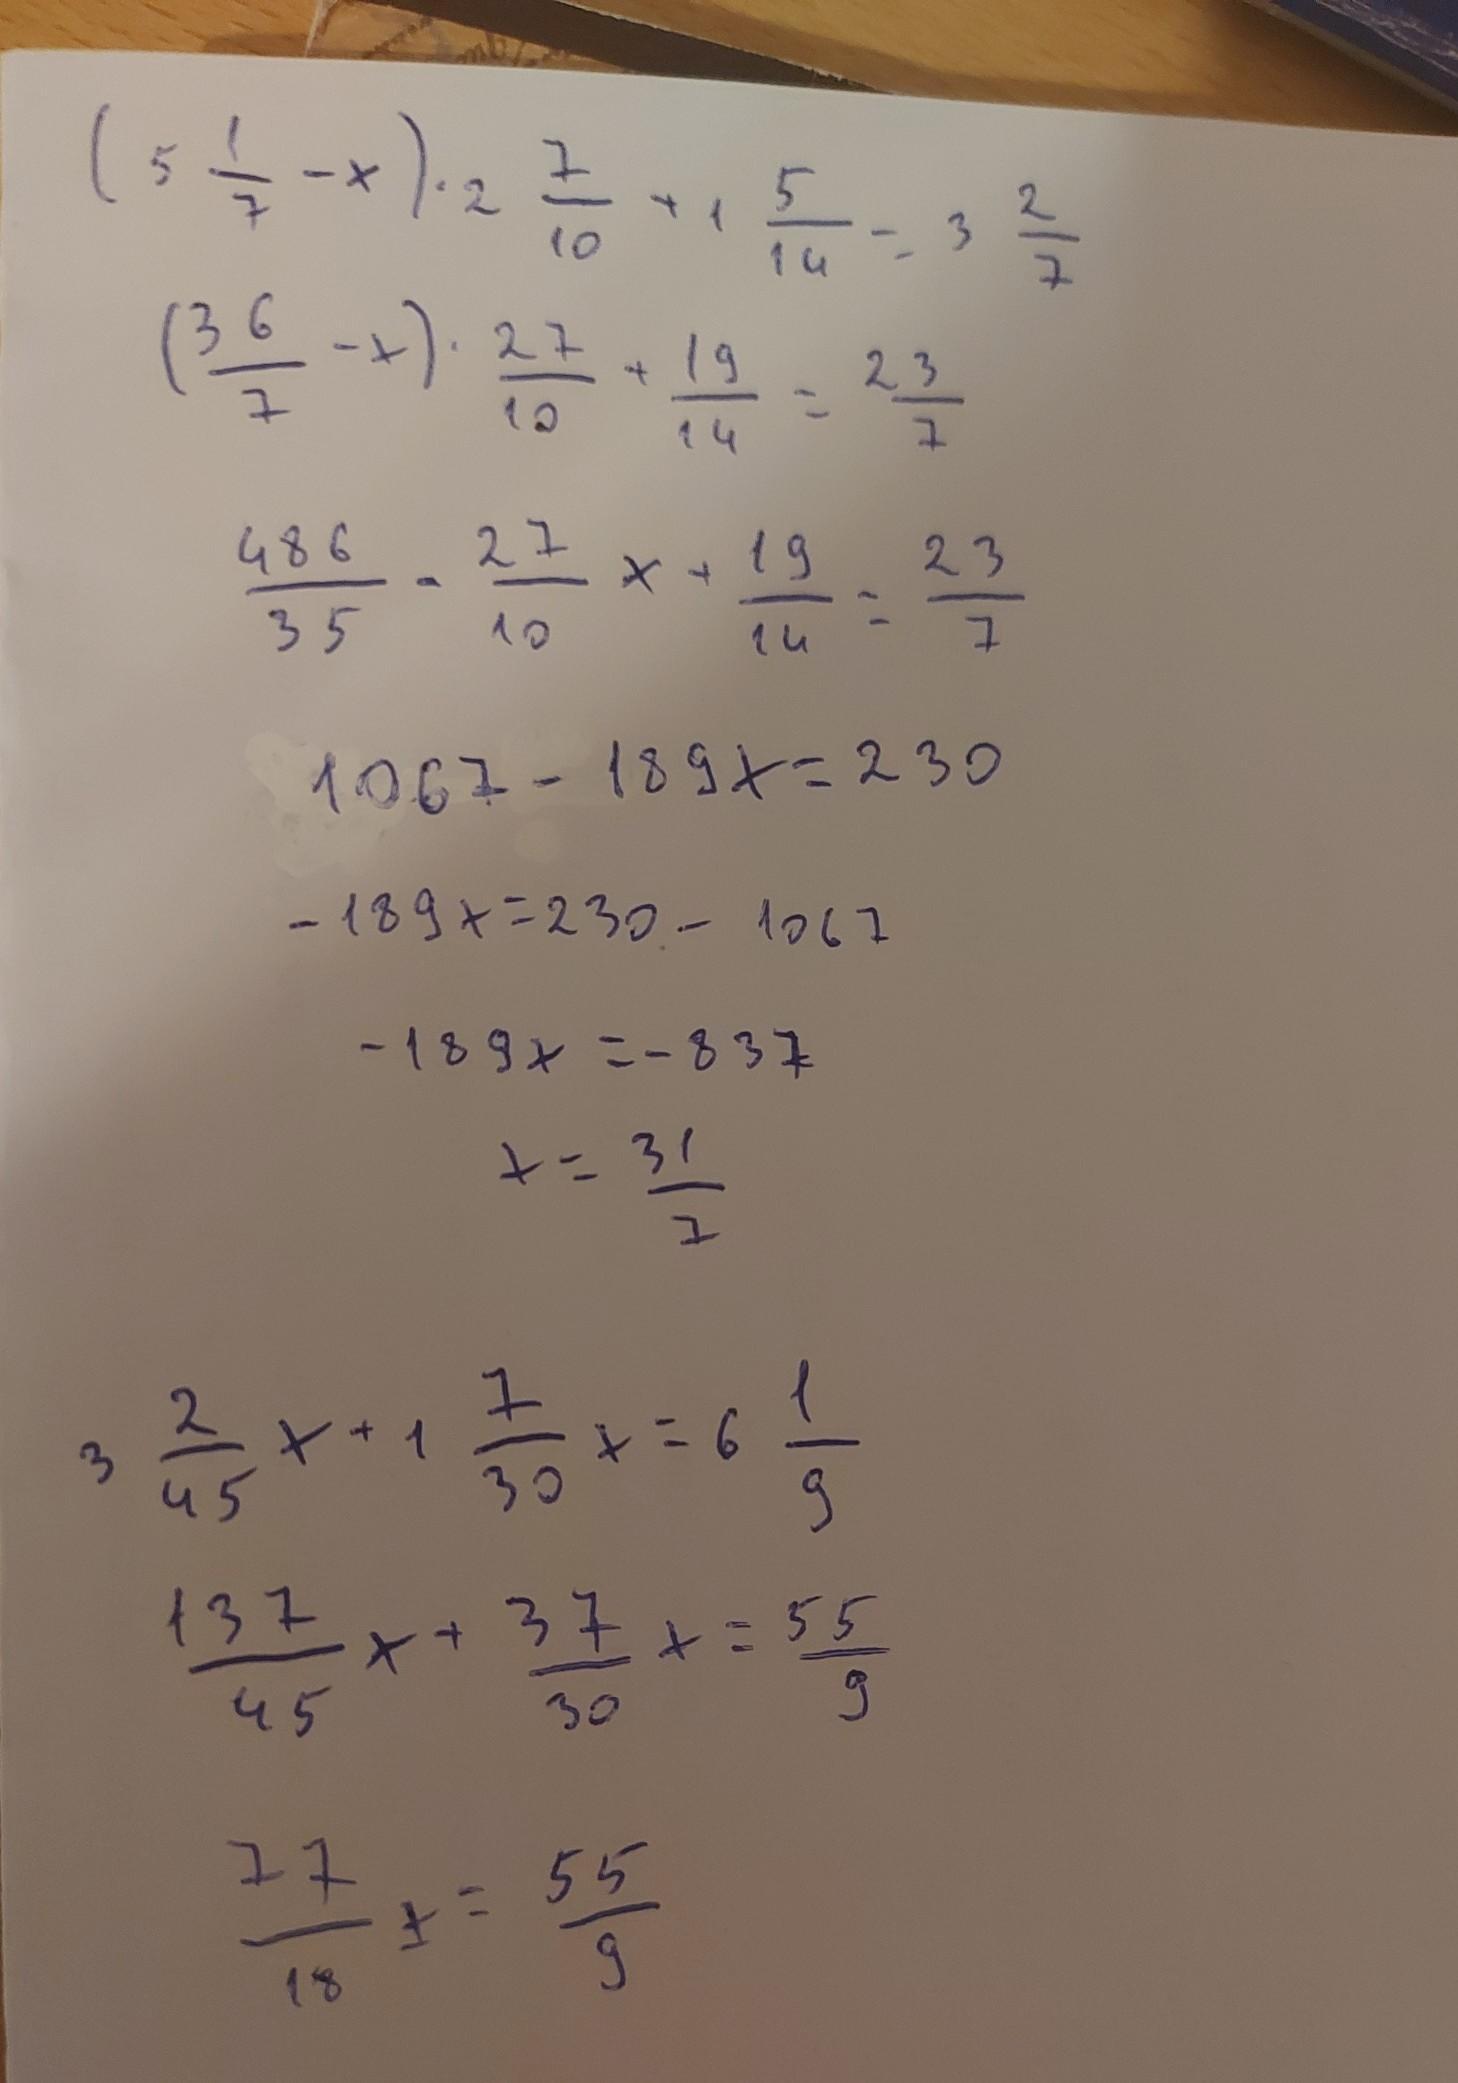 (5 1/7 - x) · 2 7/10 + 1 5/14 = 3 2/7
(36/7 - x) · 27/10 + 19/14 = 23/7
486/35 - 27/10 x + 19/14 = 23/7
1067 - 189x = 230
-189x = 230 - 1067
-189x = -837
x = 31/7
3 2/45 x + 1 7/30 x = 6 1/9
137/45 x + 37/30 x = 55/9
77/18 x = 55/9